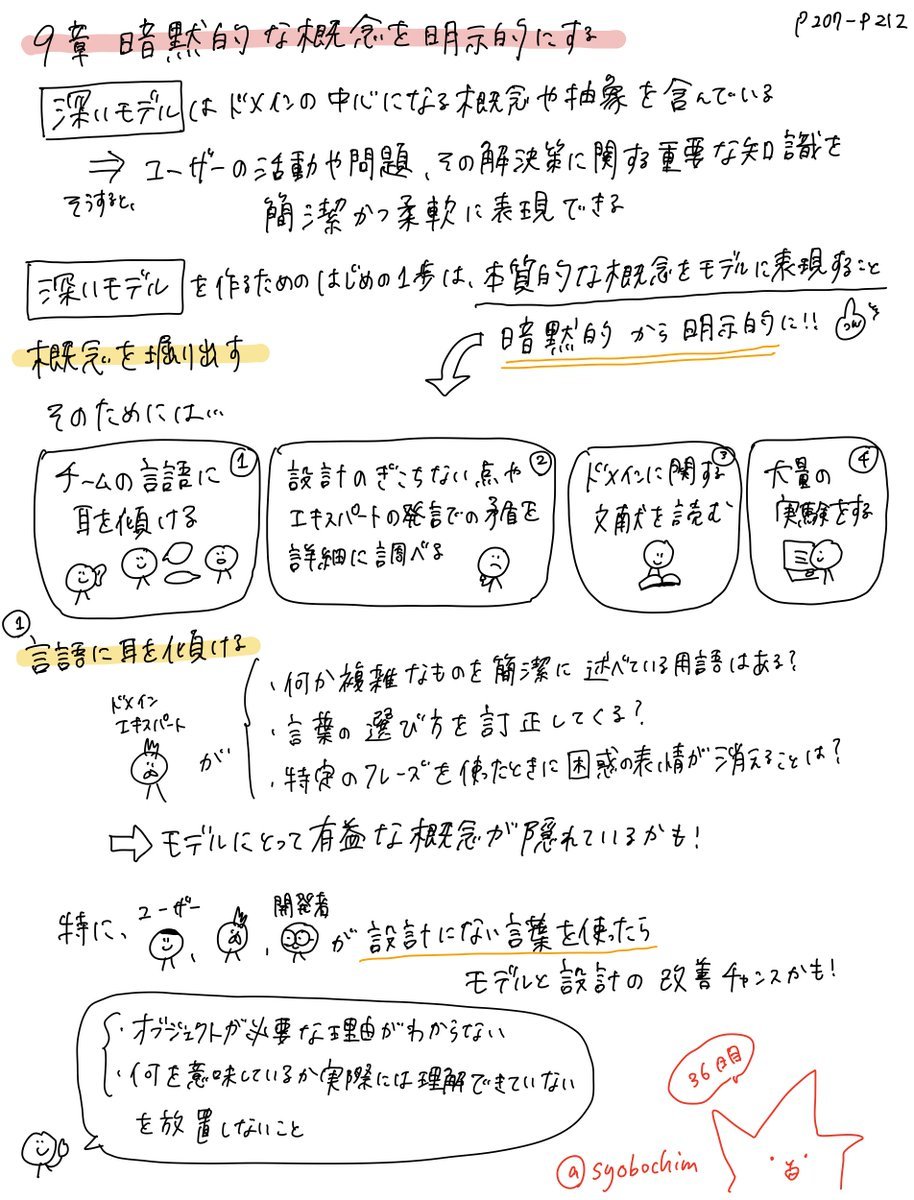 P207-P212
9章 暗黙的な概念を明示的にする
深いモデル は ドメインの中心になる概念や抽象を含んでいる
⇒ ユーザーの活動や問題、その解決策に関する重要な知識を
そうすると、
簡潔かつ柔軟に表現できる
深いモデル を作るためのはじめの1歩は、本質的な概念をモデルに表現すること
暗黙的 から 明示的に!!
概念を掘り出す
そのためには…
①
チームの言語に
耳を傾ける
②
設計のぎこちない点や
エキスパートの発言での矛盾を
詳細に調べる
③
ドメインに関する
文献を読む
④
大量の
実験をする
①
言語に耳を傾ける
ドメイン
エキスパート
が
・何か複雑なものを簡潔に述べている用語はある?
・言葉の選び方を訂正してくる?
・特定のフレーズを使ったときに困惑の表情が消えることは?
⇒ モデルにとって有益な概念が隠れているかも!
ユーザー
開発者
特に、、、が 設計にない言葉を使ったら
モデルと設計の改善チャンスかも!
・オブジェクトが必要な理由がわからない
・何を意味しているか実際には理解できていない
を放置しないこと
36日目
@syobochim